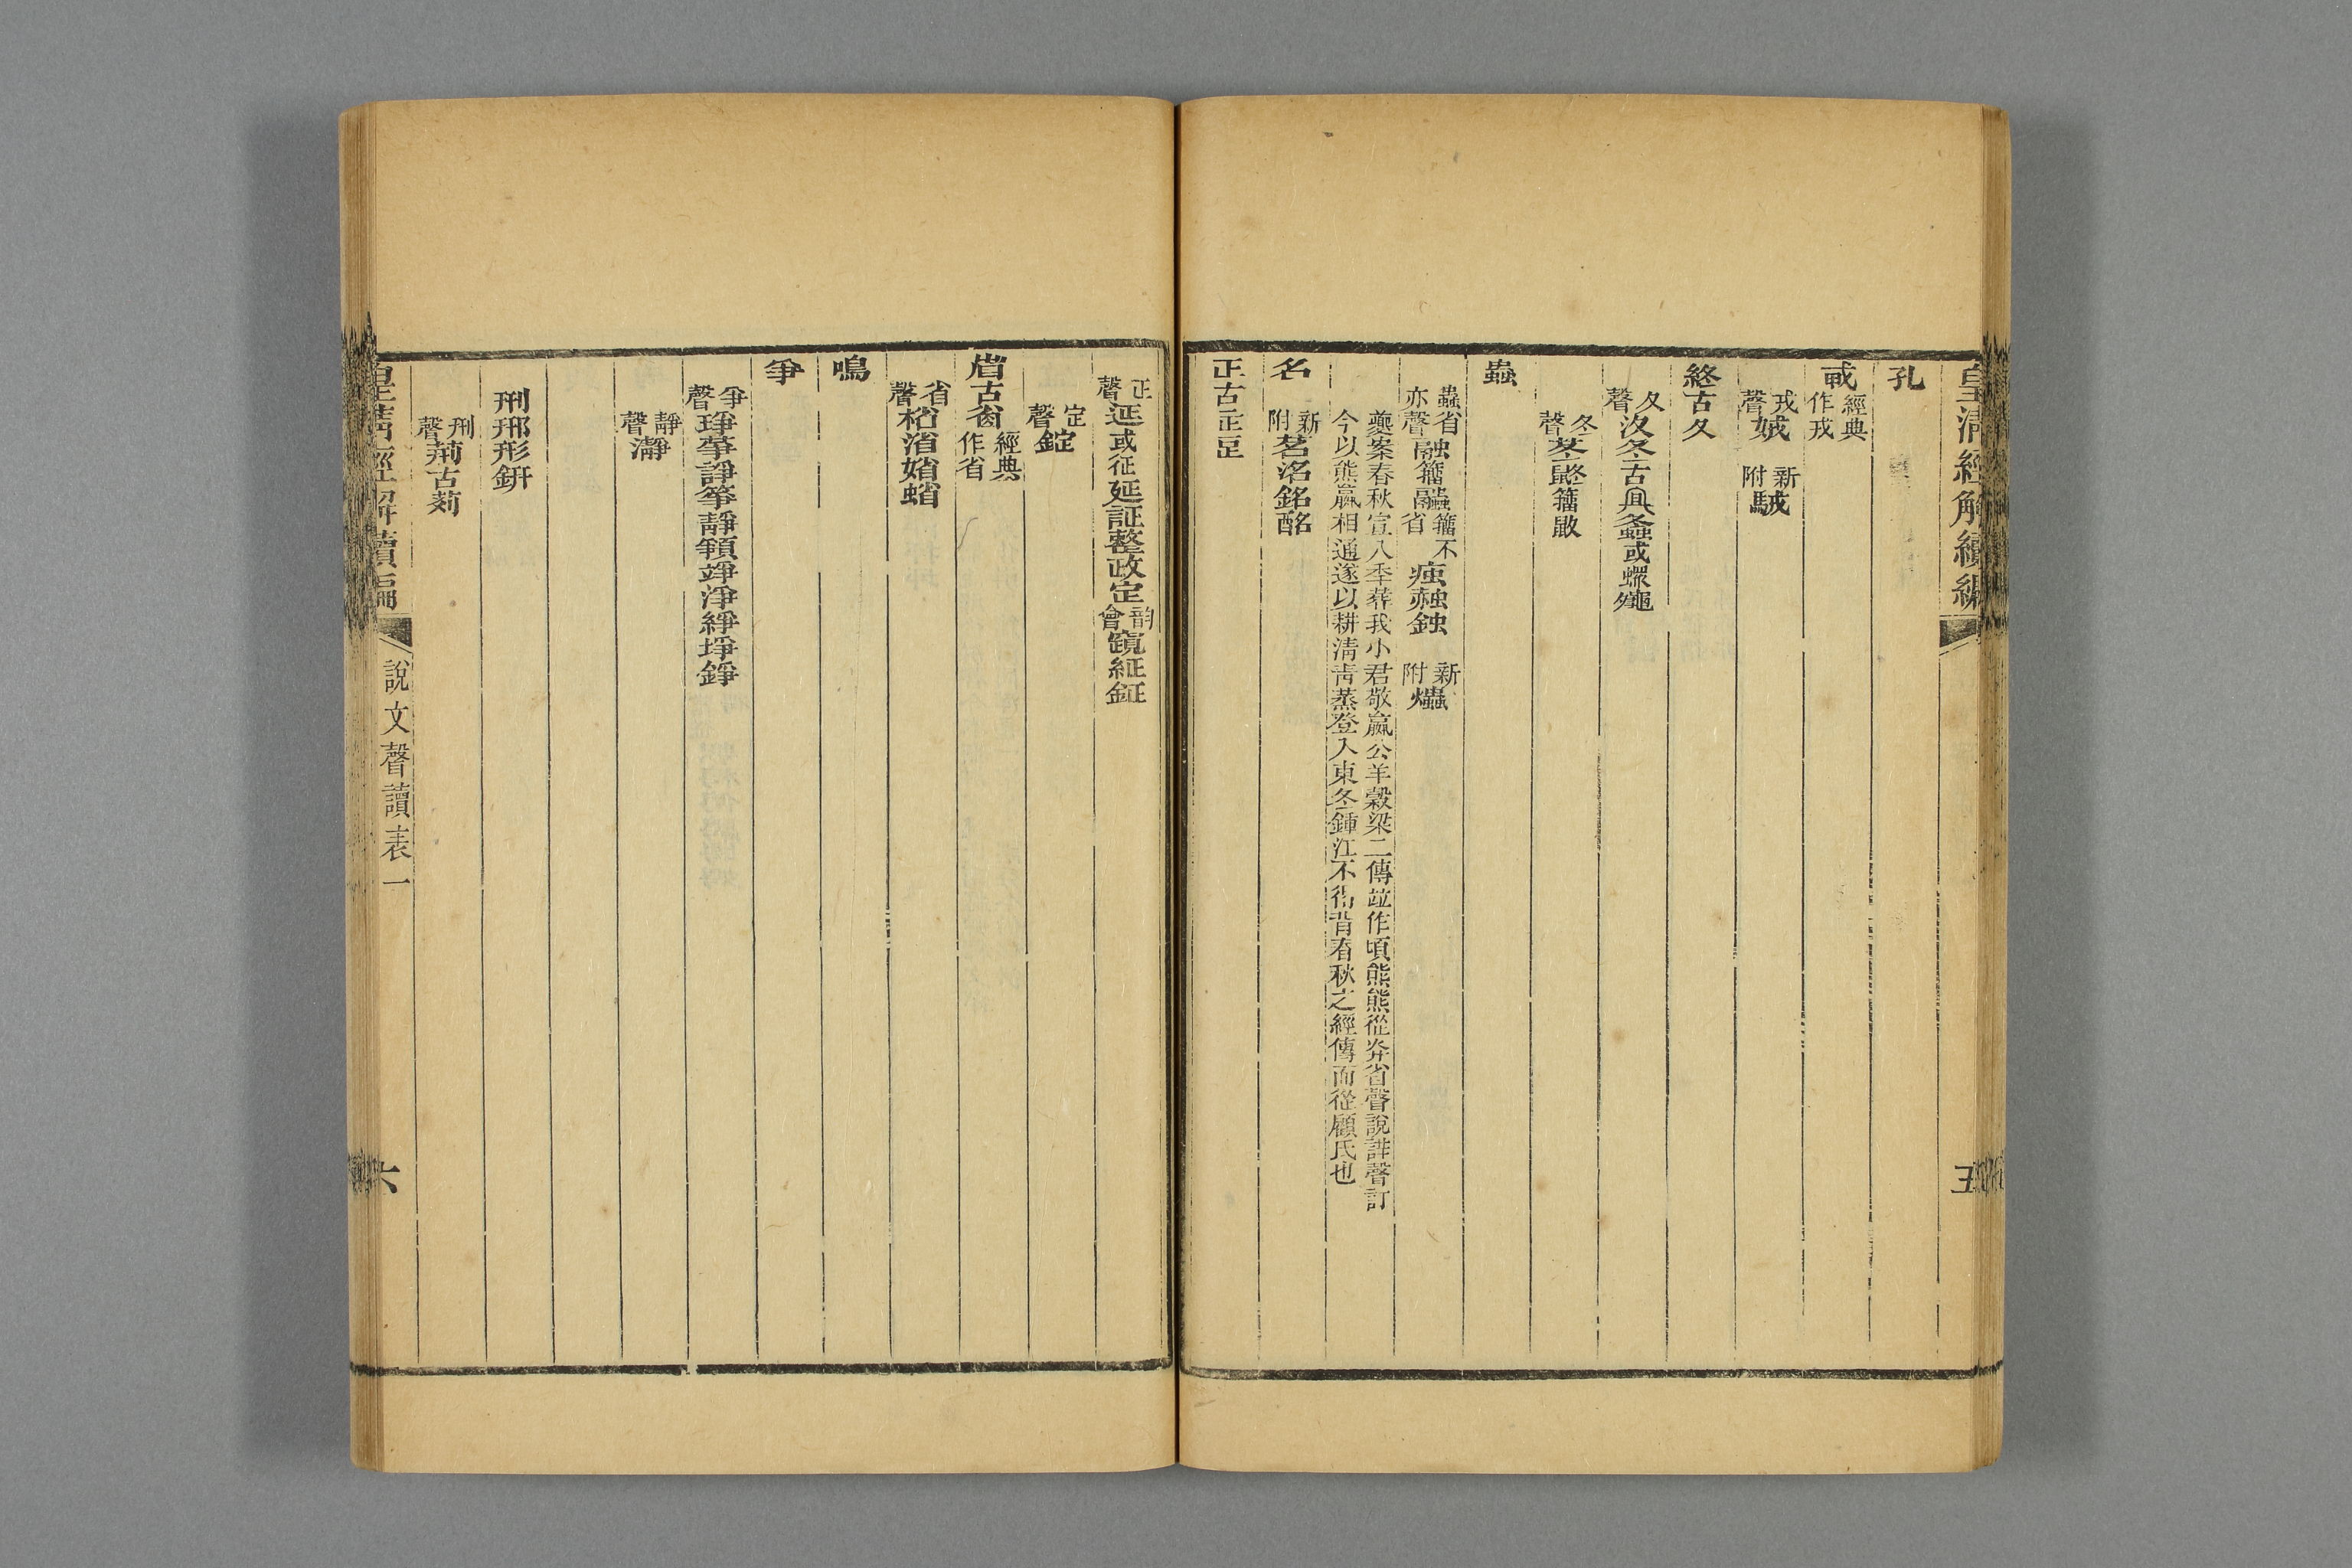 皇清經解續編
五
孔
戎經典作戎
戎聲娀新附駥
終古夂
夂聲汷冬古㒷螽或蠓
冬聲苳鼨籒
蟲
蟲省亦聲融籒籒不省痋赨鉵新附爞
夔案春秋宣八季葬我小君敬嬴公羊穀梁二傳竝作頃熊熊從炎省聲說詳聲訂
今以熊嬴相通遂以耕清青蒸登入東冬鍾江不背春秋之經傳而從顧氏也
名新附茗洺銘酩
正古
正聲延或征延証整政定韵會竀綎鉦
定聲錠
省古經典作省
省聲渻婧
鳴
爭
爭聲琤諍箏靜竫淨綪埩錚
靜聲瀞
刑邢形鈃
刑聲荊古
皇清經解續編
說文聲讀表一
六